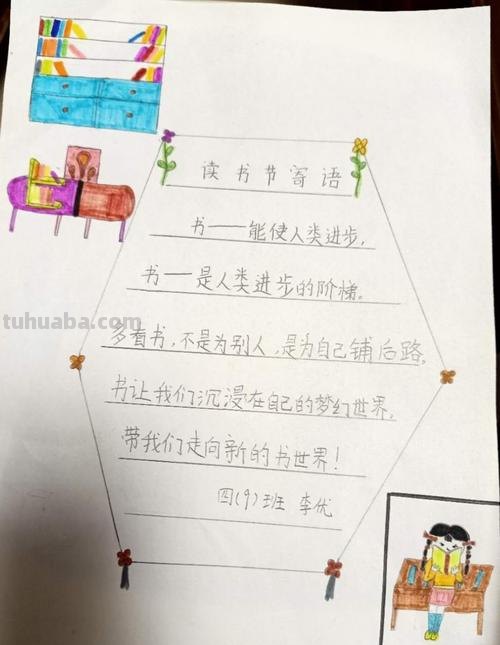 读书节寄语
书——能使人类进步，
书——是人类进步的阶梯。
多看书，不是为别人，是为自己铺后路，
书让我们沉浸在自己的梦幻世界，
带我们走向新的书世界！
四（9）班 李优
tuhuaba.com